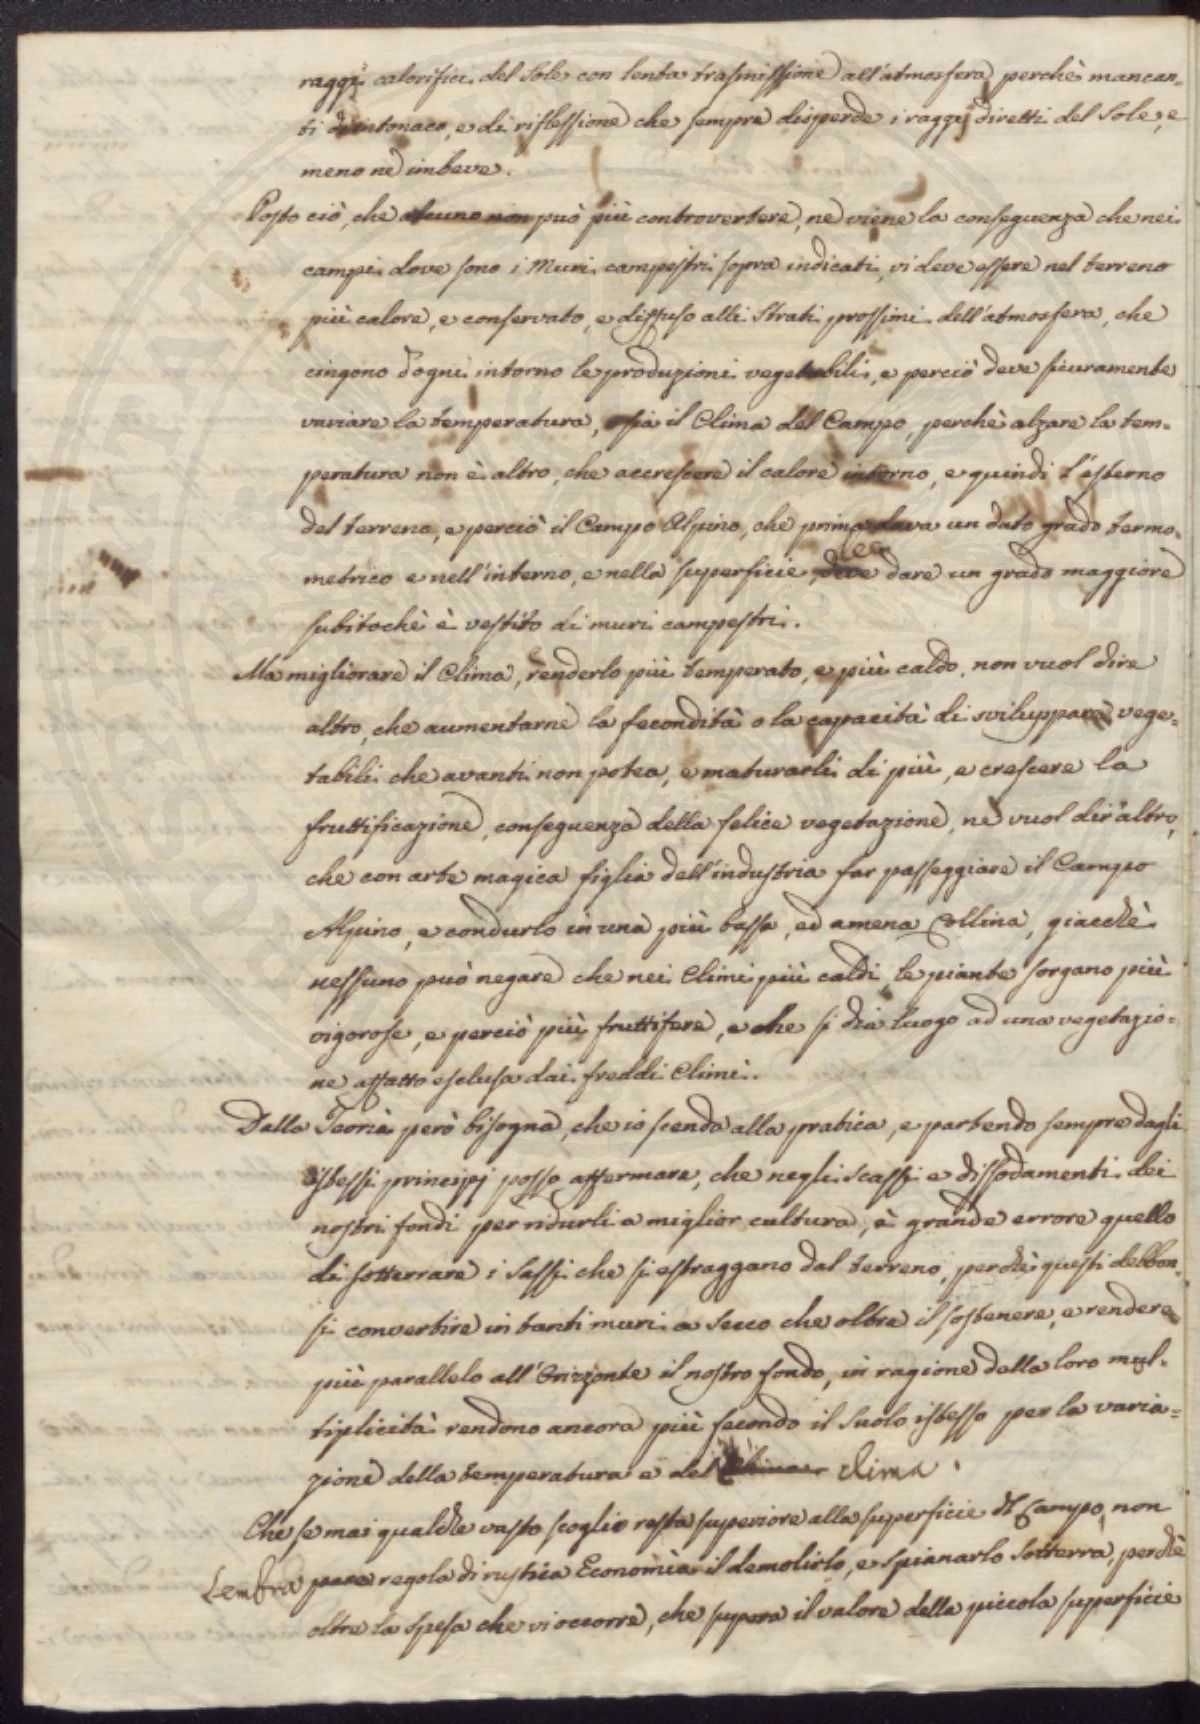 raggi calorifici del Sole con lenta trasmissione all'atmosfera perchè mancan-
ti d'intonaco, e di riflessione che sempre disperde i raggi diretti del Sole, e
meno ne imbeve.
Posto ciò, che alcuno non può più controvertere, ne viene la conseguenza che nei
campi dove sono i Muri campestri sopra indicati, vi deve essere nel terreno
più calore, e conservato, e diffuso alli Strati prossimi dell'atmosfera, che
cingono d'ogni intorno le produzioni vegetabili, e perciò deve sicuramente
variare la temperatura, ossia il Clima del Campo, perchè alzare la tem-
peratura non è altro, che accrescere il calore intorno, e quindi l'esterno
del terreno, e perciò il Campo Alpino, che prima dava un dato grado termo-
metrico e nell'interno, e nella superficie, deve dare un grado maggiore
subitochè è vestito di muri campestri.
Ma migliorare il Clima, renderlo più temperato, e più caldo, non vuol dire
altro, che aumentarne la fecondità o la capacità di sviluppare vege-
tabili che avanti non potea, e maturarli di più, e crescere la
fruttificazione, conseguenza della felice vegetazione, nè vuol dir'altro,
che con arte magica figlia dell'industria far passeggiare il Campo
Alpino, e condurlo in una più bassa, ed amena Collina, giacchè
nessuno può negare che nei Climi più caldi le piante sorgano più
vigorose, e perciò più fruttifere, e che si dia luogo ad una vegetazio-
ne affatto esclusa dai freddi Climi.
Dalla Teoria però bisogna, che io scenda alla pratica, e partendo sempre dagli
istessi principj posso affermare, che negli scassi e dissodamenti dei
nostri fondi per ridurli a miglior cultura, è grande errore quello
di sotterrare i Sassi che si estraggano dal terreno, perchè questi debbon-
si convertire in tanti muri a Secco che oltre il sostenere, e rendere
più parallelo all'Orizzonte il nostro fondo, in ragione della loro mul-
tiplicità rendono ancora più fecondo il Suolo istesso per la varia-
zione della temperatura e del Clima clima.
Che se mai qualche vasto scoglio resta superiore alla superficie del Campo, non
Sembra pare regola di rustica Economia il demolirlo, e spianarlo Sotterra, perchè
oltre la spesa che vi occorre, che supera il valore della piccola superficie